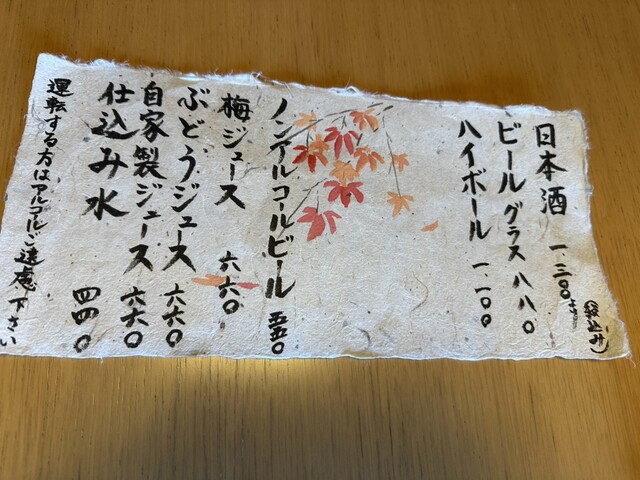 (税込み)
日本酒 一、三〇〇より
ビール グラス 八八〇
ハイボール 一、一〇〇
ノンアルコールビール 五五〇
梅ジュース 六六〇
ぶどうジュース 六六〇
自家製ジュース 六六〇
仕込み水 四四〇
運転する方はアルコールご遠慮下さい